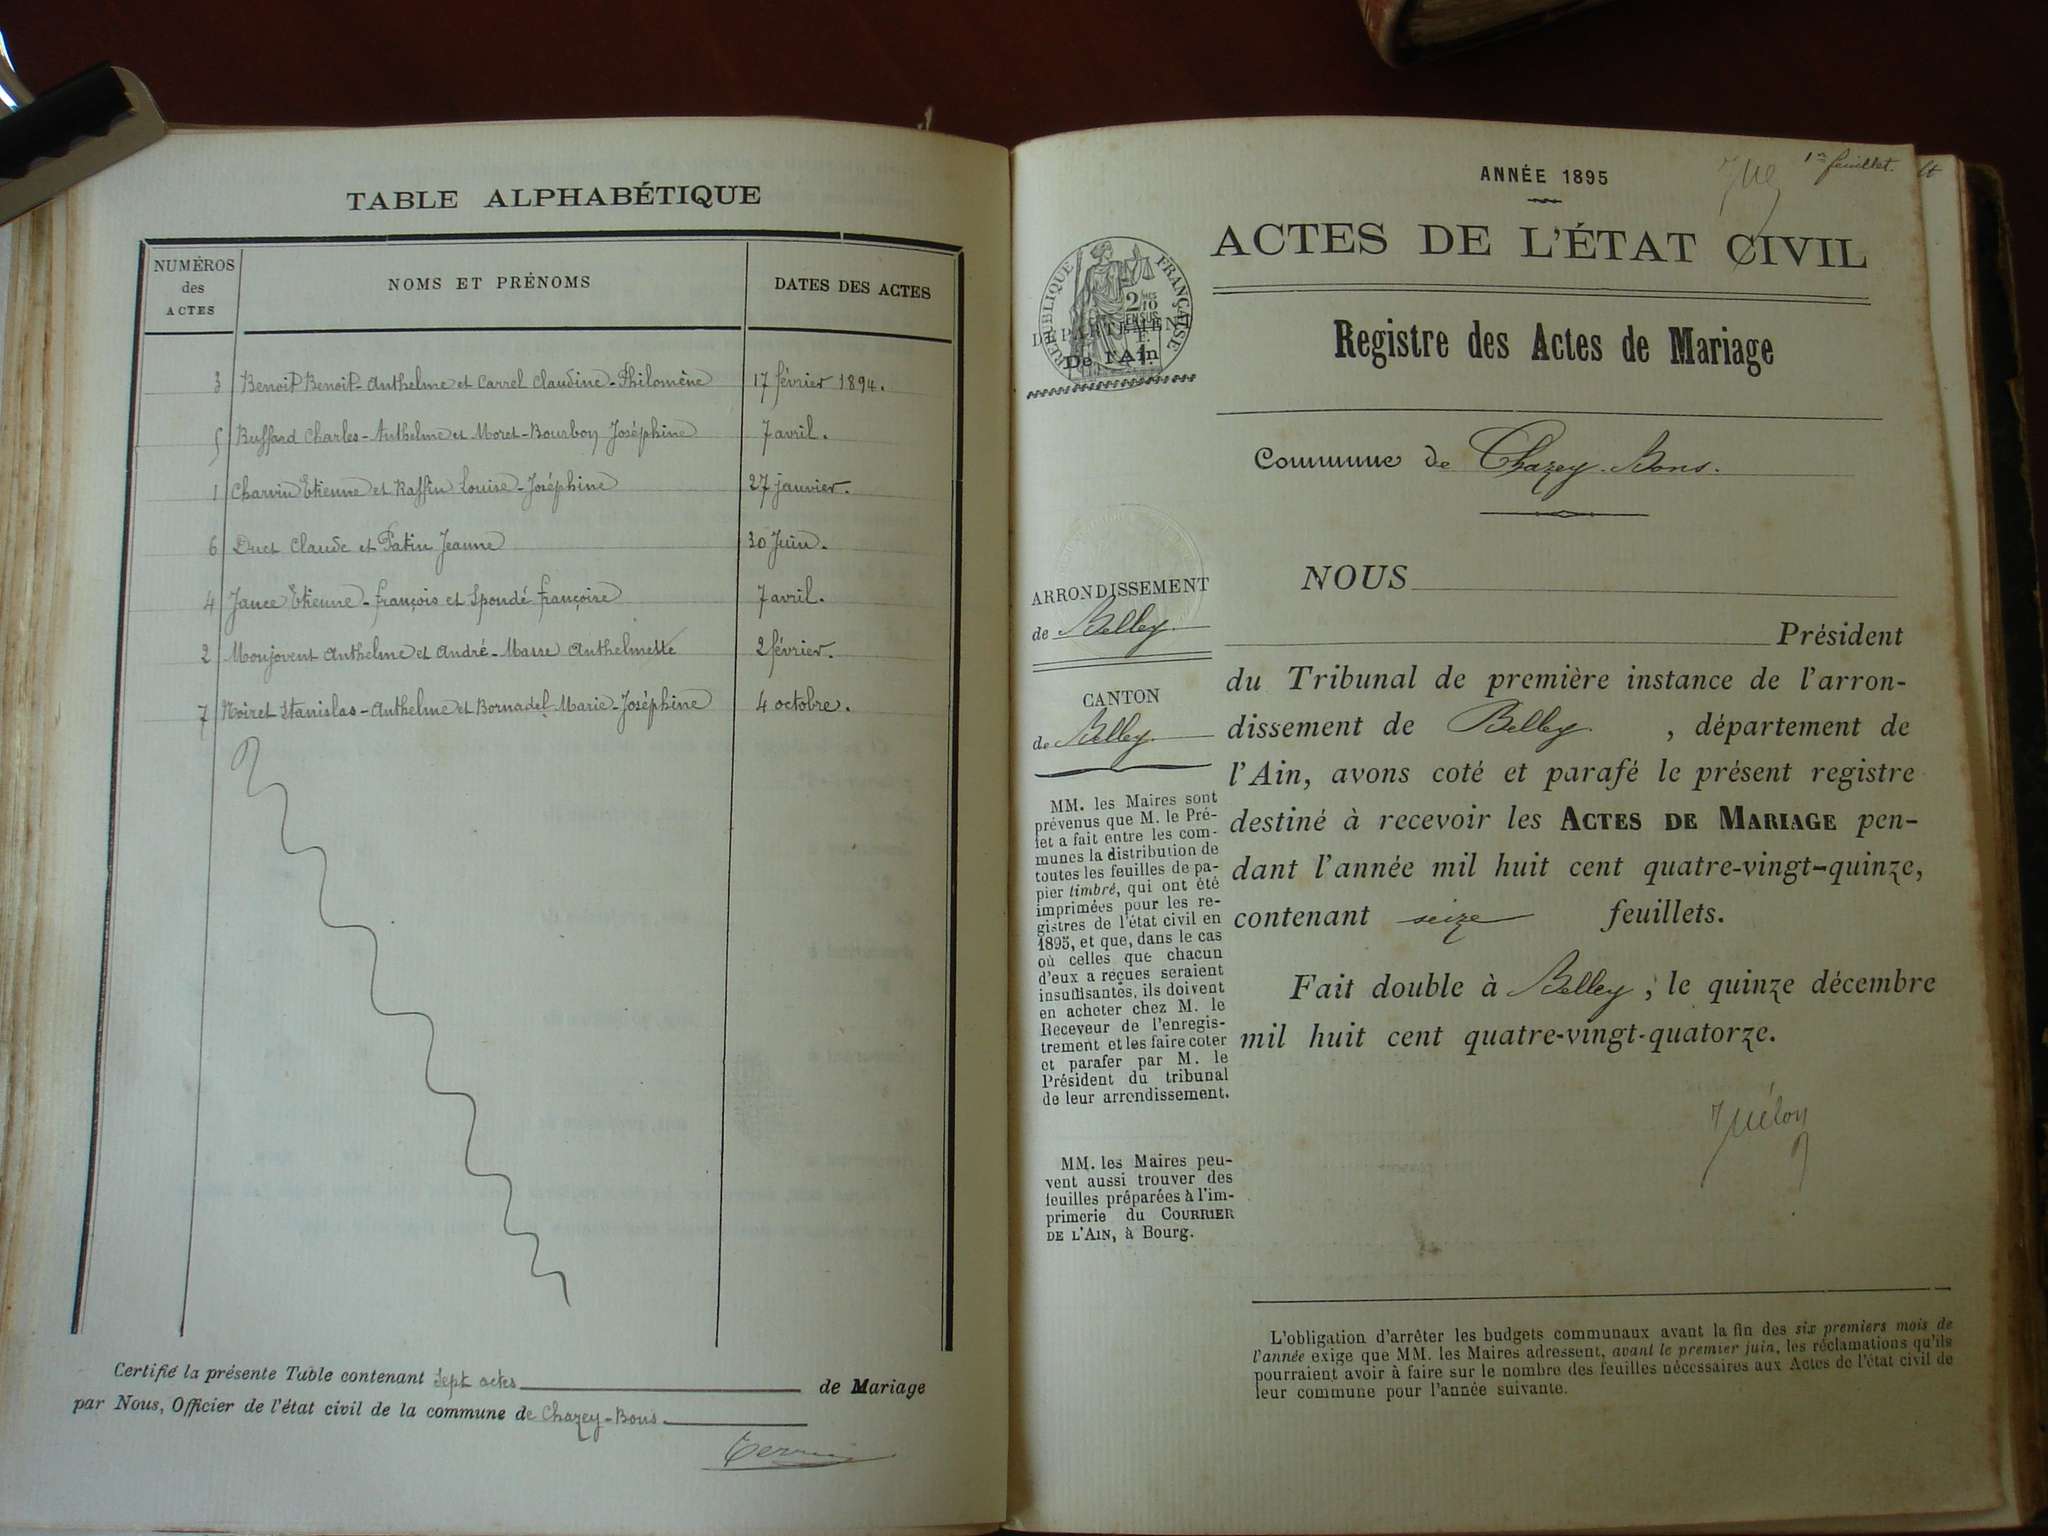 TABLE ALPHABÉTIQUE
NUMÉROS
des
ACTES
NOMS ET PRÉNOMS
DATES DES ACTES
3 Benoit Benoit-Anthelme et Carrel Claudine-Philomène 17 février 1894.
5 Buffard Charles-Anthelme et Moret-Bourbon Joséphine 7 avril.
1 Charvin Etienne et Raffin Louise-Joséphine 27 janvier.
6 Duct Claude et Patin Jeanne 30 Juin.
4 Jance Etienne-François et Spondé Françoise 7 avril.
2 Monjovent Anthelme et André-Masse Anthelmette 2 février.
7 Noiret Stanislas-Anthelme et Bornadel Marie-Joséphine 4 octobre.
Certifié la présente Table contenant sept actes de Mariage
par Nous, Officier de l'état civil de la commune de Chazey-Bons
1er feuillet.
ANNÉE 1895
ACTES DE L'ÉTAT CIVIL
RÉPUBLIQUE FRANÇAISE
2 10
EN SUS
DÉPARTEMENT
De l'Ain
Registre des Actes de Mariage
Commune de Chazey-Bons.
ARRONDISSEMENT
de Belley
CANTON
de Belley
MM. les Maires sont
prévenus que M. le Pré-
fet a fait entre les com-
munes la distribution de
toutes les feuilles de pa-
pier timbré, qui ont été
imprimées pour les re-
gistres de l'état civil en
1895, et que, dans le cas
où celles que chacun
d'eux a reçues seraient
insuffisantes, ils doivent
en acheter chez M. le
Receveur de l'enregis-
trement et les faire coter
et parafer par M. le
Président du tribunal
de leur arrondissement.
MM. les Maires peu-
vent aussi trouver des
feuilles préparées à l'im-
primerie du COURRIER
DE L'AIN, à Bourg.
NOUS
Président
du Tribunal de première instance de l'arron-
dissement de Belley , département de
l'Ain, avons coté et parafé le présent registre
destiné à recevoir les ACTES DE MARIAGE pen-
dant l'année mil huit cent quatre-vingt-quinze,
contenant seize feuillets.
Fait double à Belley, le quinze décembre
mil huit cent quatre-vingt-quatorze.
L'obligation d'arrêter les budgets communaux avant la fin des six premiers mois de
l'année exige que MM. les Maires adressent, avant le premier juin, les réclamations qu'ils
pourraient avoir à faire sur le nombre des feuilles nécessaires aux Actes de l'état civil de
leur commune pour l'année suivante.